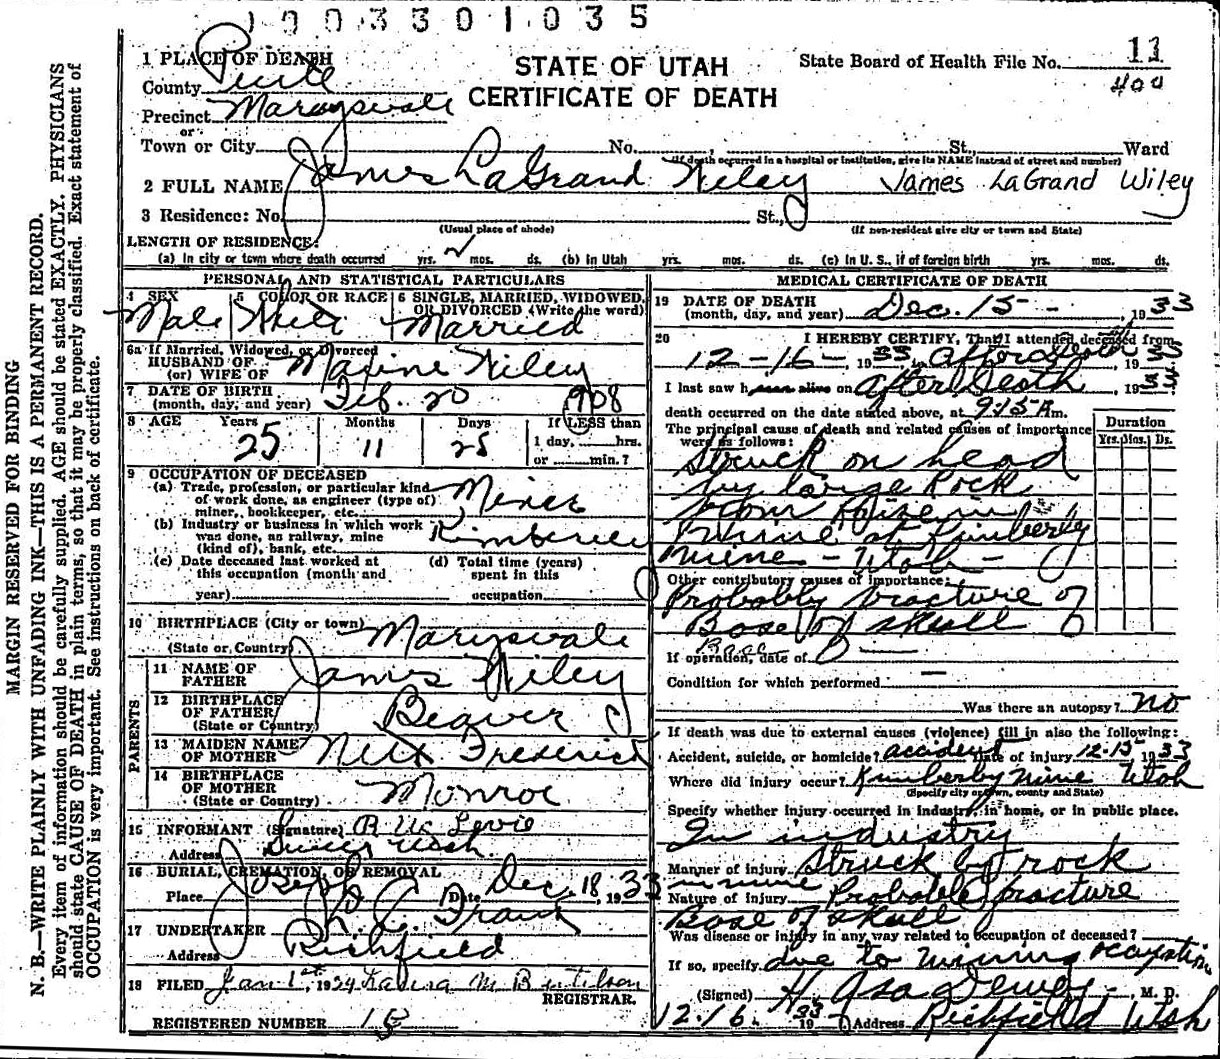 1003301035
1 PLACE OF DEATH
STATE OF UTAH
CERTIFICATE OF DEATH
State Board of Health File No. 11
400
County Piute
Precinct Marysvale
or
Town or City No. , St., Ward
(If death occurred in a hospital or institution, give its NAME instead of street and number)
2 FULL NAME James LaGrand Wiley James LaGrand Wiley
3 Residence: No. St.,
(Usual place of abode) (If non-resident give city or town and State)
LENGTH OF RESIDENCE:
(a) In city or town where death occurred yrs. mos. ds. (b) in Utah yrs. mos. ds. (c) in U. S., if of foreign birth yrs. mos. ds.
PERSONAL AND STATISTICAL PARTICULARS
4 SEX 5 COLOR OR RACE 6 SINGLE, MARRIED, WIDOWED, OR DIVORCED (Write the word)
Male White Married
6a If Married, Widowed, or Divorced
HUSBAND OF
(or) WIFE OF Maxine Wiley
7 DATE OF BIRTH
(month, day, and year) Feb. 20 1908
8 AGE Years Months Days If LESS than
25 11 25 1 day, hrs.
or min.?
9 OCCUPATION OF DECEASED
(a) Trade, profession, or particular kind
of work done, as engineer (type of)
miner, bookkeeper, etc. Miner
(b) Industry or business in which work
was done, as railway, mine
(kind of), bank, etc. Kimberley
(c) Date deceased last worked at
this occupation (month and
year)
(d) Total time (years)
spent in this
occupation
10 BIRTHPLACE (City or town)
(State or Country) Marysvale
PARENTS
11 NAME OF
FATHER James Wiley
12 BIRTHPLACE
OF FATHER
(State or Country) Beaver
13 MAIDEN NAME
OF MOTHER Frederick
14 BIRTHPLACE
OF MOTHER
(State or Country) Monroe
15 INFORMANT (Signature)
Address Utah
16 BURIAL, CREMATION, OR REMOVAL
Place Joseph Date Dec. 18, 1933
17 UNDERTAKER
Address Richfield
18 FILED Jan 1st, 1934
REGISTRAR.
REGISTERED NUMBER
MEDICAL CERTIFICATE OF DEATH
19 DATE OF DEATH
(month, day, and year) Dec. 15 - , 1933
20 I HEREBY CERTIFY, That I attended deceased from
12-16-, 1933 after death, 1933
I last saw h on after death 1933
death occurred on the date stated above, at 9:15 A m.
The principal cause of death and related causes of importance
were as follows: Duration
Yrs. Mos. Ds.
Struck on head
by large Rock
mine at Kimberly
mine - Utah -
Other contributory causes of importance:
Probably fracture of
Base of skull
Base
If operation, date of
Condition for which performed
Was there an autopsy? no
If death was due to external causes (violence) fill in also the following:
Accident, suicide, or homicide? accident Date of injury 12-15 1933
Where did injury occur? Kimberly mine Utah
(Specify city or town, county and State)
Specify whether injury occurred in industry, in home, or in public place.
In industry
Manner of injury Struck by rock
in mine
Nature of injury Probable fracture
Base of skull
Was disease or injury in any way related to occupation of deceased?
If so, specify due to mining occupation
(Signed) H Asa Dewey, M. D.
12-16- 1933 Address Richfield Utah
MARGIN RESERVED FOR BINDING
N. B.—WRITE PLAINLY WITH UNFADING INK—THIS IS A PERMANENT RECORD.
Every item of information should be carefully supplied. AGE should be stated EXACTLY. PHYSICIANS
should state CAUSE OF DEATH in plain terms, so that it may be properly classified. Exact statement of
OCCUPATION is very important. See instructions on back of certificate.